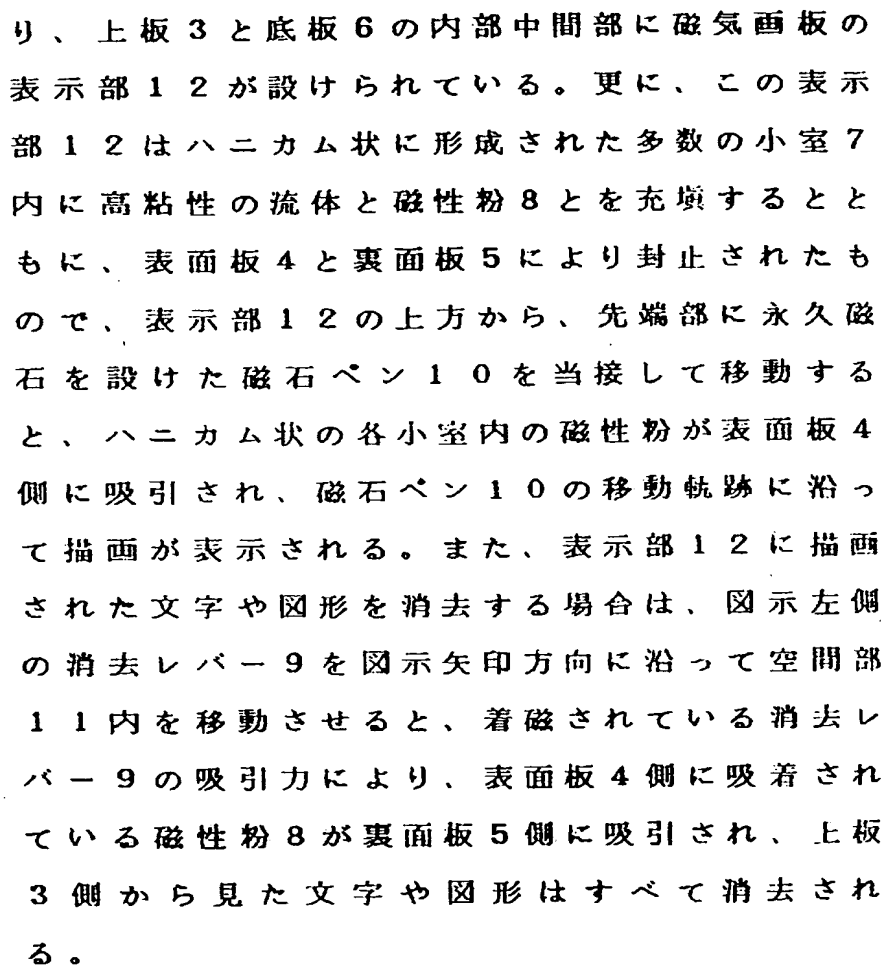 り、上板3と底板6の内部中間部に磁気画板の
表示部12が設けられている。更に、この表示
部12はハニカム状に形成された多数の小室7
内に高粘性の流体と磁性粉8とを充塡するとと
もに、表面板4と裏面板5により封止されたも
ので、表示部12の上方から、先端部に永久磁
石を設けた磁石ペン10を当接して移動する
と、ハニカム状の各小室内の磁性粉が表面板4
側に吸引され、磁石ペン10の移動軌跡に沿っ
て描画が表示される。また、表示部12に描画
された文字や図形を消去する場合は、図示左側
の消去レバー9を図示矢印方向に沿って空間部
11内を移動させると、着磁されている消去レ
バー9の吸引力により、表面板4側に吸着され
ている磁性粉8が裏面板5側に吸引され、上板
3側から見た文字や図形はすべて消去され
る。